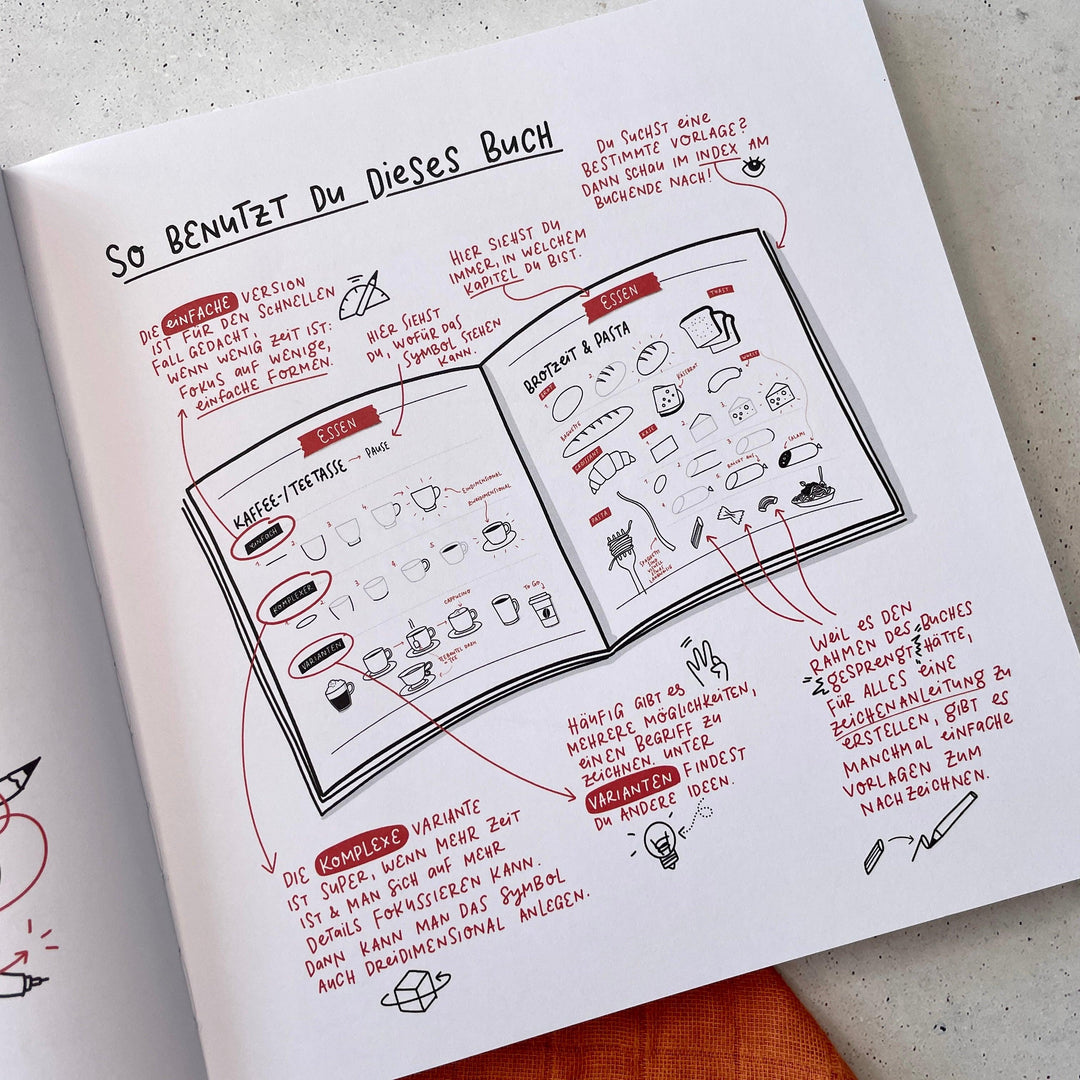 So BENUTZT DU DIESES BUCH
DU SUCHST EINE
BESTIMMTE VORLAGE?
DANN SCHAU IM INDEX AM
BUCHENDE NACH!
HIER SIEHST DU
IMMER, IN WELCHEM
KAPITEL DU BIST.
DIE EINFACHE VERSION
IST FÜR DEN SCHNELLEN
FALL GEDACHT,
WENN WENIG ZEIT IST:
FOKUS AUF WENIGE,
EINFACHE FORMEN.
HIER SIEHST
DU, WOFÜR DAS
SYMBOL STEHEN
KANN.
ESSEN
KAFFEE-/TEETASSE → PAUSE
EINFACH
1. 2. 3. 4.
EINDIMENSIONAL
ZWEIDIMENSIONAL
KOMPLEXER
1. 2. 3. 4. 5.
VARIANTEN
CAPPUCINO
TO GO
TEEBEUTEL DARIN
= TEE
ESSEN
BROTZEIT & PASTA
TOAST
BROT
1. 2. 3.
WURST
BAGUETTE
KÄSEBROT
KÄSE
1. 2. 3.
CROISSANT
SALAMI
PASTA
SPAGHETTI
DIE EINFACHE
DIE KOMPLEXE VARIANTE
IST SUPER, WENN MEHR ZEIT
IST & MAN SICH AUF MEHR
DETAILS FOKUSSIEREN KANN.
DANN KANN MAN DAS SYMBOL
AUCH DREIDIMENSIONAL ANLEGEN.
HÄUFIG GIBT ES
MEHRERE MÖGLICHKEITEN,
EINEN BEGRIFF ZU
ZEICHNEN. UNTER
VARIANTEN FINDEST
DU ANDERE IDEEN.
WEIL ES DEN
RAHMEN DES BUCHES
GESPRENGT HÄTTE,
FÜR ALLES EINE
ZEICHENANLEITUNG ZU
ERSTELLEN, GIBT ES
MANCHMAL EINFACHE
VORLAGEN ZUM
NACHZEICHNEN.